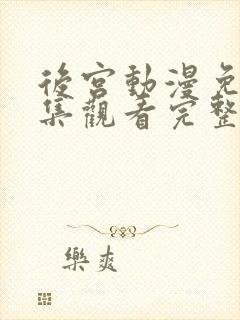 後宮動漫免
集觀看完整
樂爽